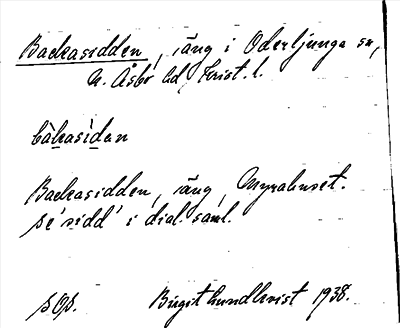 Backasidden, äng i Oderljunga sn,
N. Åsbo hd, Krist. l.
bàkasìdan
Backasidden, äng, Myrahuset.
se 'sidd' i dial. saml.
sOs. Birgit Lundkvist 1938.